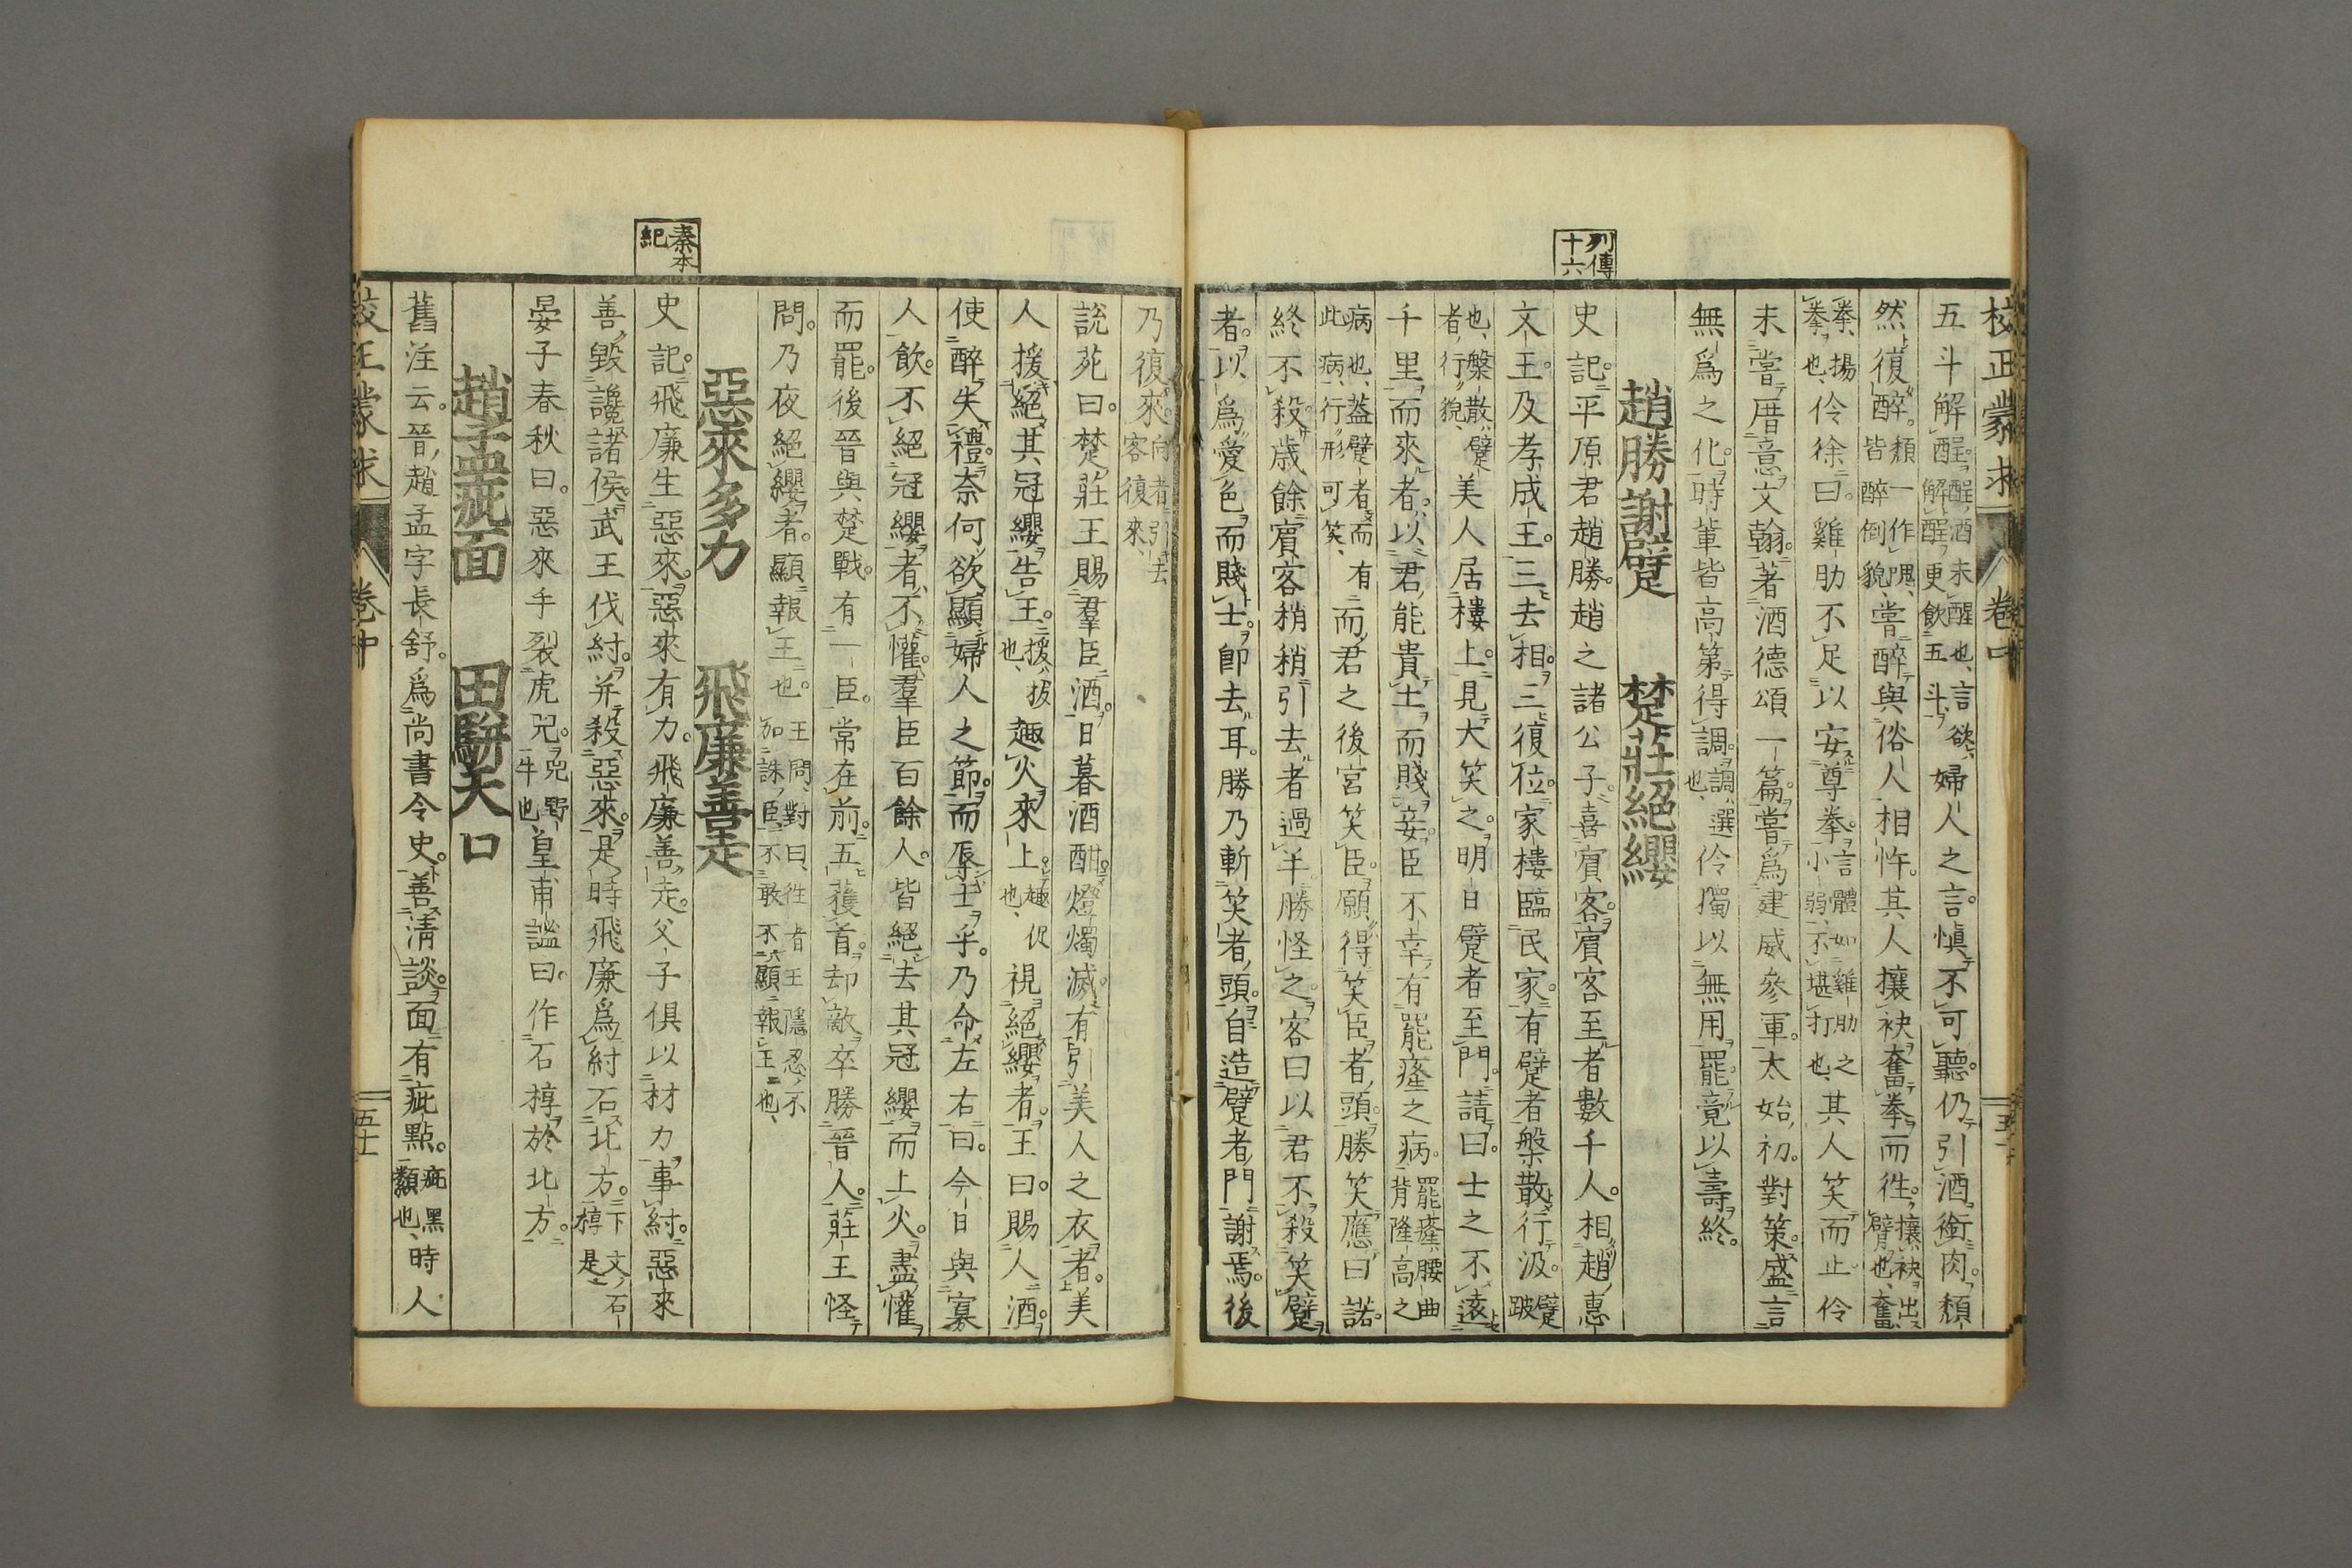 校正蒙求 卷中
五斗解酲。酲酒未醒也、言欲解酲更飲五斗、婦人之言。愼不可聽。仍引酒銜肉。頽
然復醉。頽一作隗、皆醉倒貌、嘗醉與俗人相忤。其人攘袂奮拳而徃。攘袂出臂也、奮
拳、揚拳也、伶徐曰。雞肋不足以安尊拳。言體如雞肋之小弱、不堪打也、其人笑而止伶
未嘗厝意文翰。著酒德頌一篇。嘗爲建威參軍。太始初。對策。盛言
無爲之化。時輩皆高第得調。調選也、伶獨以無用罷。竟以壽終。
趙勝謝躄 楚莊絕纓
列傳十六
史記。平原君趙勝。趙之諸公子。喜賓客。賓客至者數千人。相趙惠
文王。及孝成王。三去相。三復位。家樓臨民家。有躄者槃散行汲。躄跛
也、槃散、躄者行貌、美人居樓上。見大笑之。明日躄者至門。請曰。士之不遠
千里而來者。以君能貴士。而賤妾。臣不幸有罷癃之病。罷癃、腰曲背隆高之
病也、蓋躄者而有此病、行形可笑、而君之後宮笑臣。願得笑臣者頭。勝笑應曰諾。
終不殺歳餘賓客稍稍引去者過半。勝怪之。客曰以君不殺笑躄
者。以爲愛色而賤士。卽去耳。勝乃斬笑者頭。自造躄者門謝焉。後
乃復來。向者引去客復來、
說苑曰。楚莊王賜羣臣酒。日暮酒酣。燈燭滅。有引美人之衣者。美
人援絕其冠纓。告王。援拔也、趣火來上。趣促也、視絕纓者。王曰。賜人酒。
使醉失禮。奈何欲顯婦人之節。而辱士乎。乃命左右曰。今日與寡
人飲。不絕冠纓者不懽。羣臣百餘人。皆絕去其冠纓。而上火。盡懽
而罷。後晉與楚戰。有一臣。常在前。五獲首。却敵卒勝晉人。莊王怪
問。乃夜絕纓者。顯報王也。王問、對曰、徃者王隱忍、不加誅、臣不敢不顯報王也、
惡來多力 飛廉善走
秦本紀
史記。飛廉生惡來。惡來有力。飛廉善走。父子俱以材力事紂。惡來
善毀讒諸侯。武王伐紂。并殺惡來。是時飛廉爲紂石北方。下文、石椁是
晏子春秋曰。惡來手裂虎兕。兕野牛也、皇甫謐曰。作石椁於北方。
趙孟疵面 田駢天口
舊注云。晉趙孟字長舒。爲尚書令史。善淸談。面有疵點。疵黑纇也、時人
校正蒙求 卷中 五十